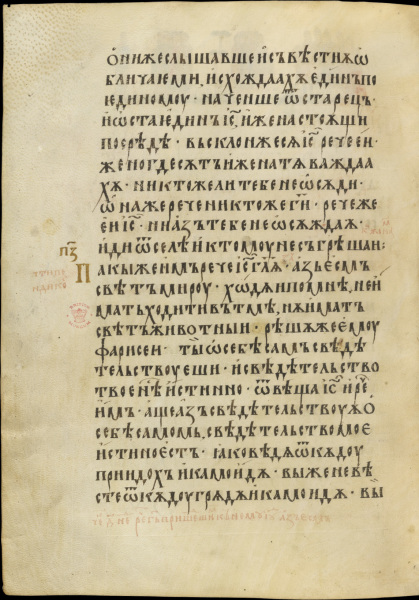 Ѻни же слышавше и съвѣстиѫ ѡ
бличаеми, исхождаахѫ единъ по
единомоу · наченше ѿ старець ·
и ѡста единъ і҃с, и жена стоѧщи
посрѣдѣ · въсклон же сѧ і҃с рече еи ·
жено где сѫтъ иже на тѧ важдаа
хѫ · никто же ли тебе не ѡсѫди ·
ѡна же рече никто же г҃и · рече же
еи і҃с · ни азъ тебе не ѡсѫждаѫ ·
иди ѿселѣ и к томоу не съгрѣшаи:
п҃з
Пакы же имъ рече і҃с гл҃ѧ · азъ есмъ
свѣтъ мироу · ходѧи по мнѣ, не и
матъ ходити въ тмѣ, нѫ иматъ
свѣтъ животныи · рѣшѫ же емоу
фарисеи · ты ѡ себѣ самъ свѣдѣ
тельствоуеши · и свѣдѣтельство
твое нѣ истинно · ѿвѣща і҃с и ре
имъ · аще азъ свѣдѣтельствоуѫ ѻ
себѣ самомь, свѣдѣтельство мое
истинно естъ · ꙗко вѣдѣ ѿкѫдоу
приидохъ и камо идѫ · вы же не вѣ
сте ѿкѫдоу грѧдѫ и камо идѫ · вы